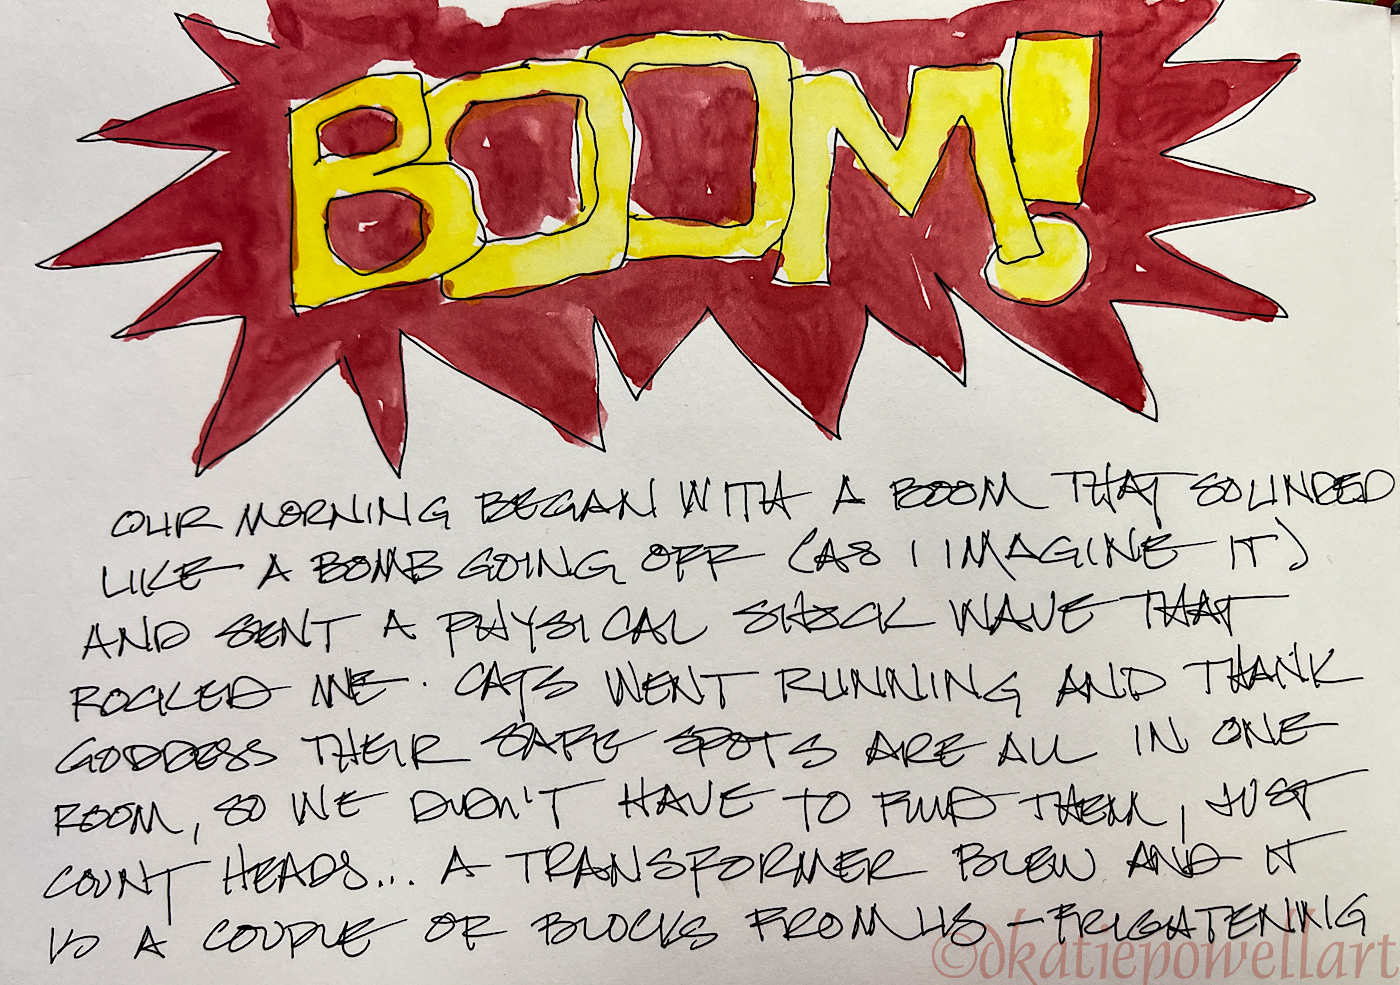 BOOM!
OUR MORNING BEGAN WITH A BOOM THAT SOUNDED
LIKE A BOMB GOING OFF (AS I IMAGINE IT)
AND SENT A PHYSICAL SHOCK WAVE THAT
ROCKED ME. CATS WENT RUNNING AND THANK
GODDESS THEIR SAFE SPOTS ARE ALL IN ONE
ROOM, SO WE DIDN'T HAVE TO FIND THEM, JUST
COUNT HEADS... A TRANSFORMER BLEW AND IT
IS A COUPLE OF BLOCKS FROM US – FRIGHTENING
©dkatiepowellart